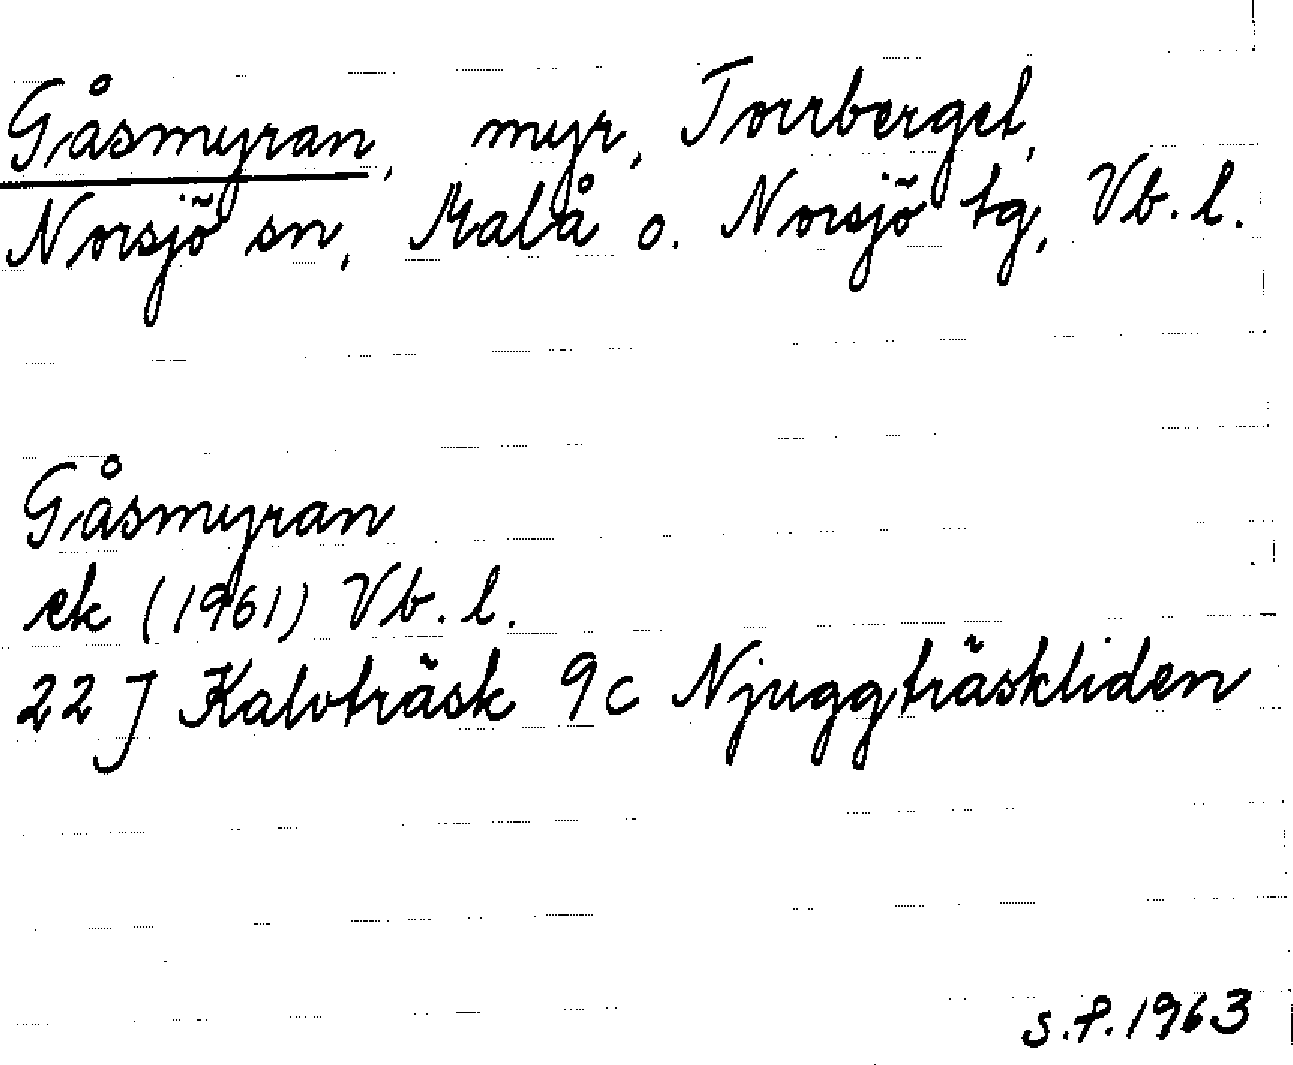 Gåsmyran, myr, Torrberget,
Norsjö sn, Malå o. Norsjö tg, Vb. l.
Gåsmyran
ek (1961) Vb. l.
22 J Kalvträsk 9c Njuggträskliden
S.F. 1963